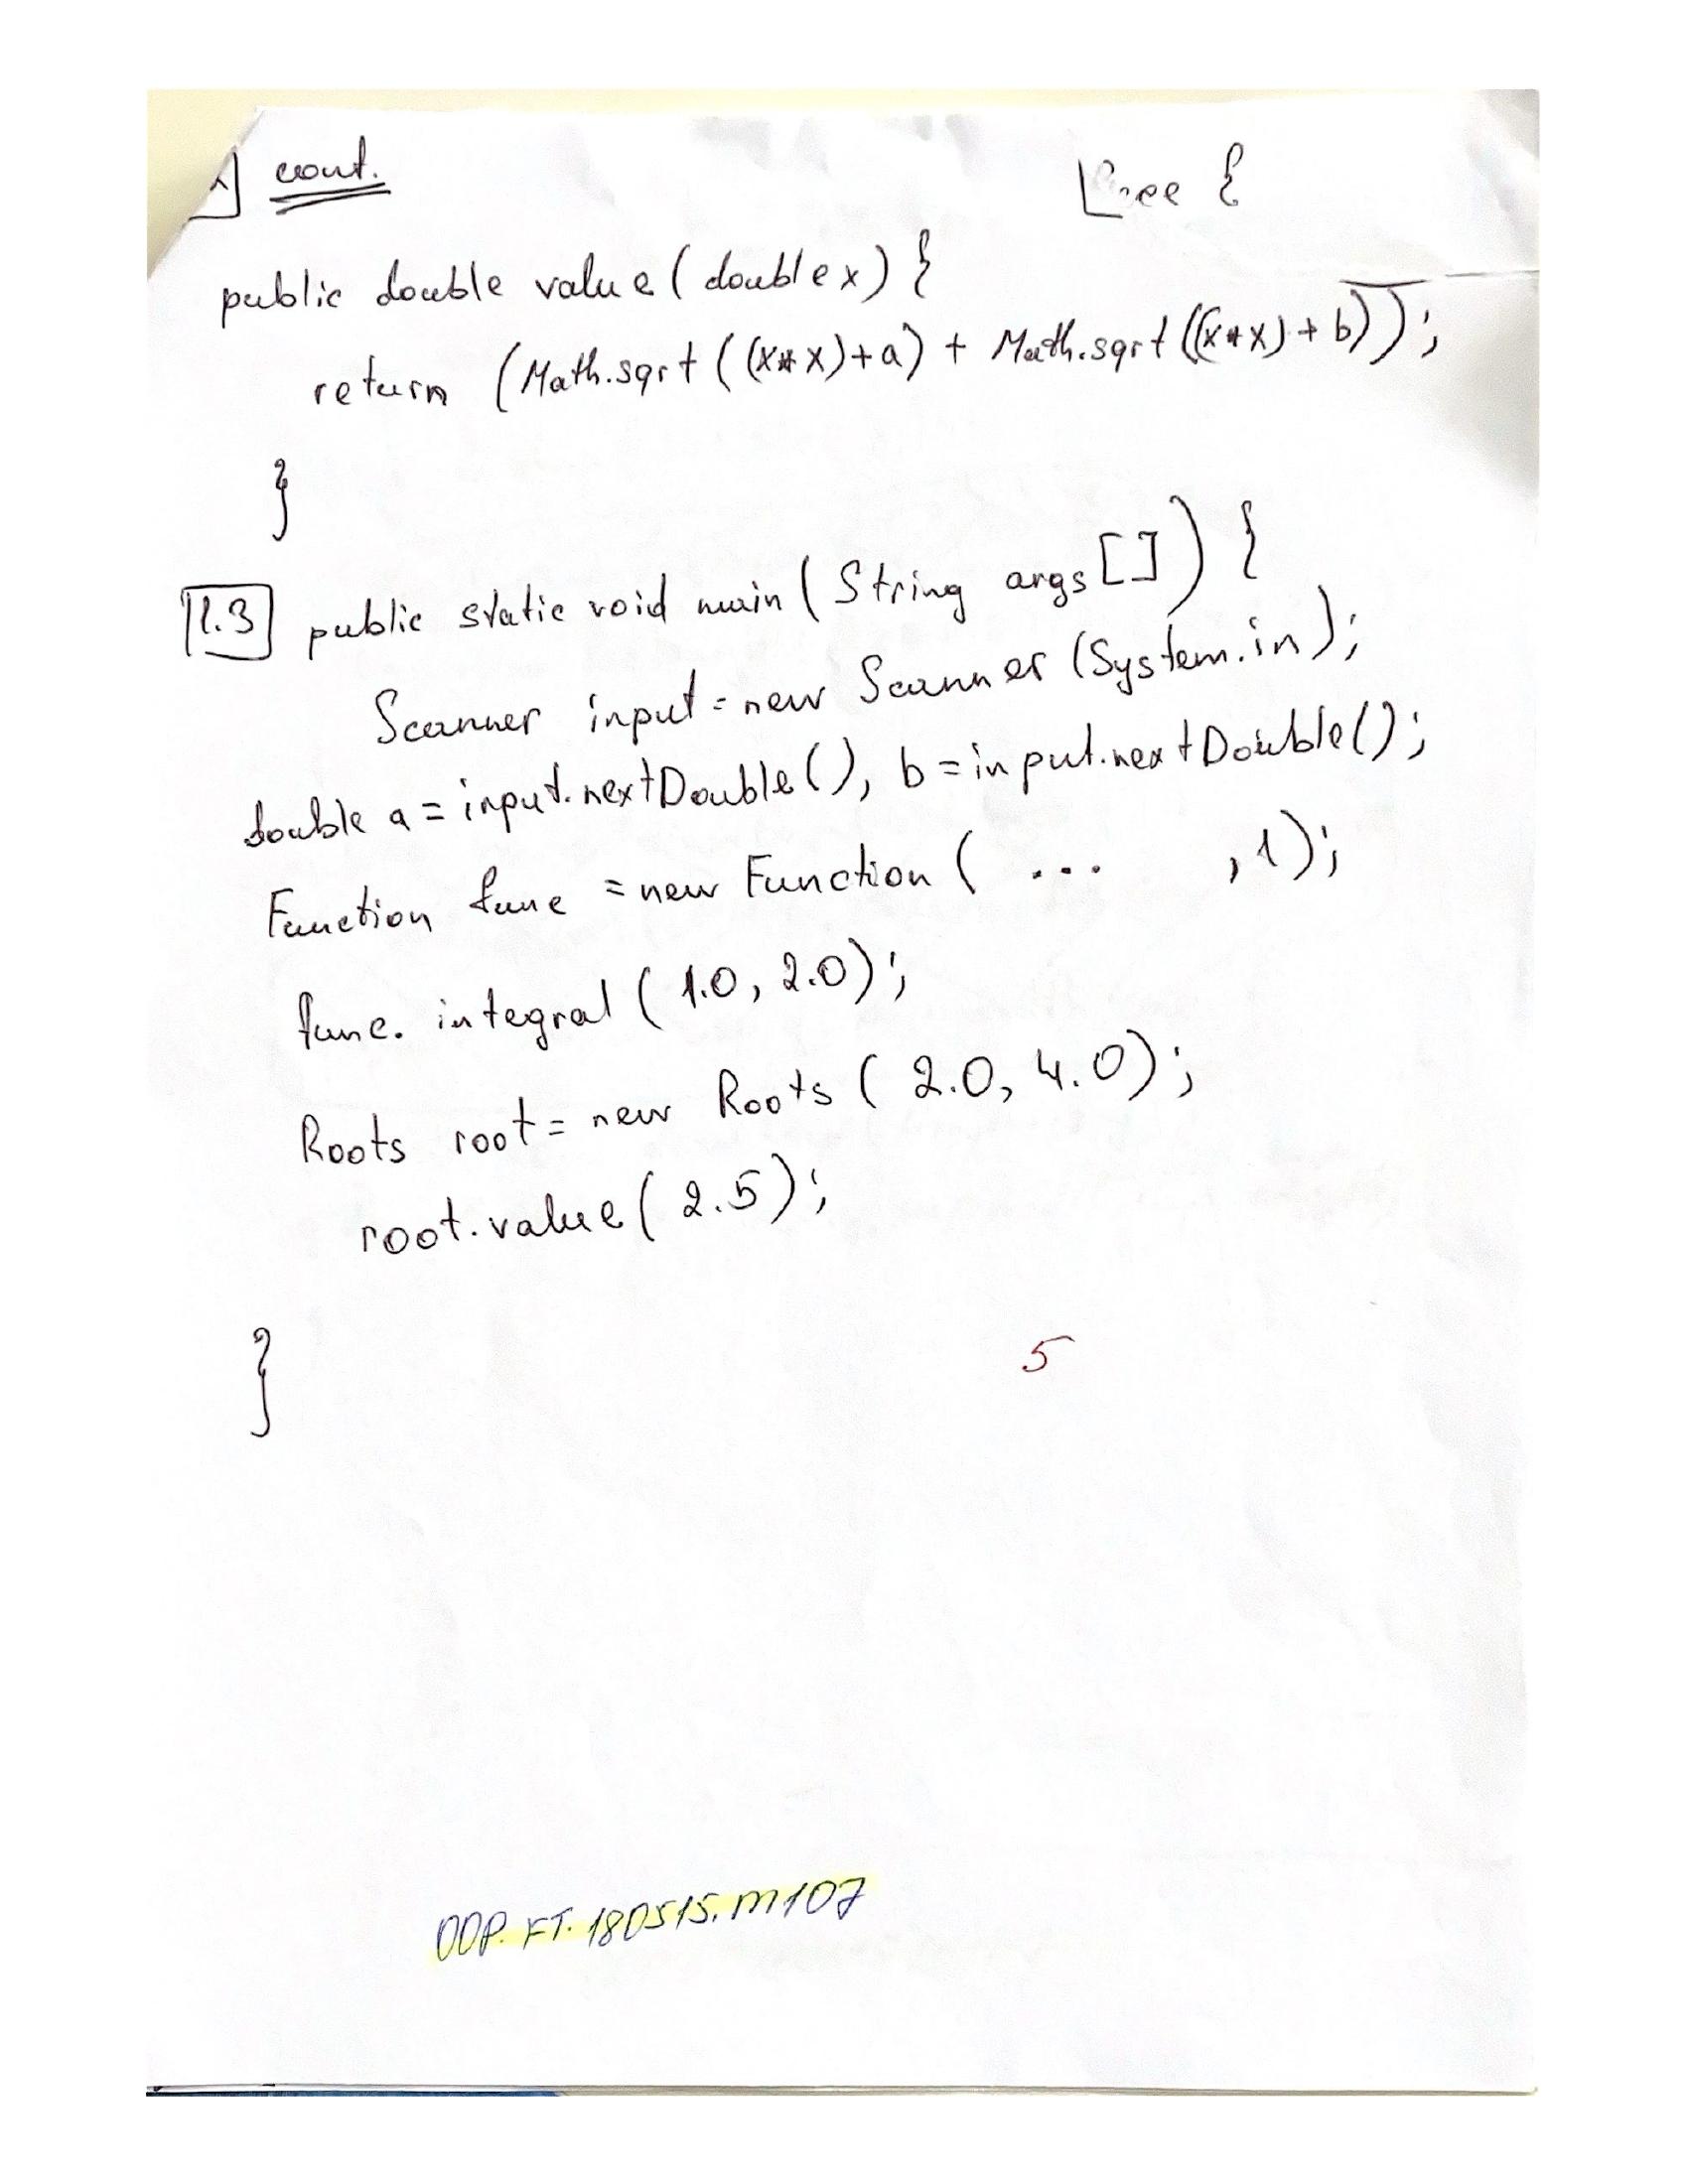 cont.
{
public double value (double x) {
return (Math.sqrt ((x*x)+a) + Math.sqrt ((x*x)+b));
}
11.3 public static void main (String args []) {
Scanner input = new Scanner (System.in);
double a = input.nextDouble(), b = input.nextDouble();
Function func = new Function ( ... , 1);
func. integral ( 1.0, 2.0);
Roots root = new Roots ( 2.0, 4.0);
root.value ( 2.5);
}
5
OOP. FT. 180515. M107